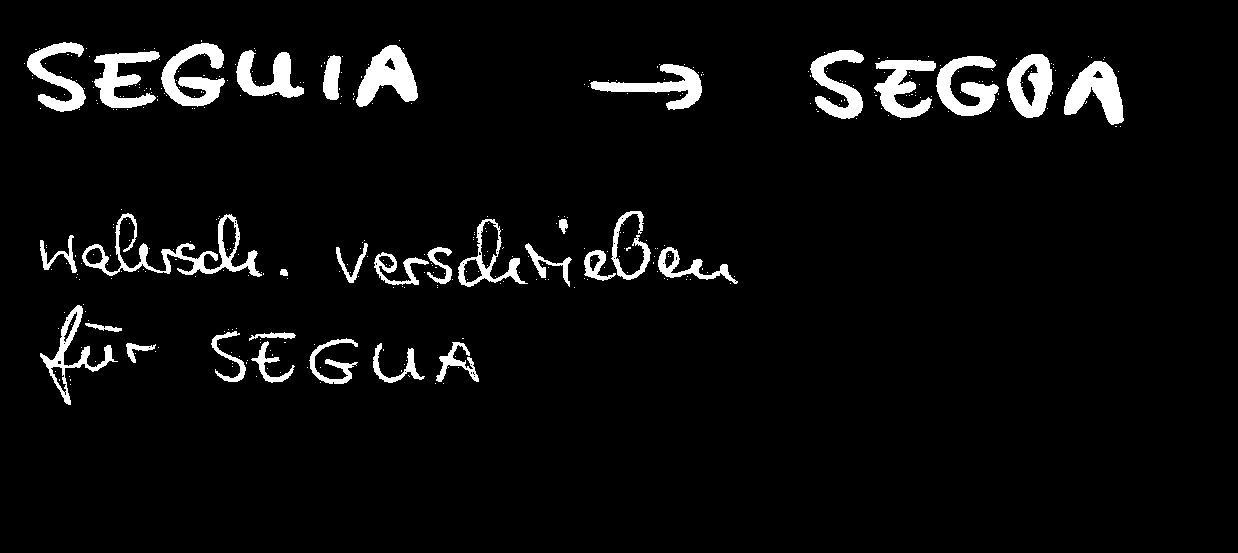 SEGUIA → SEGOA
wahrsch. verschrieben
für SEGUA